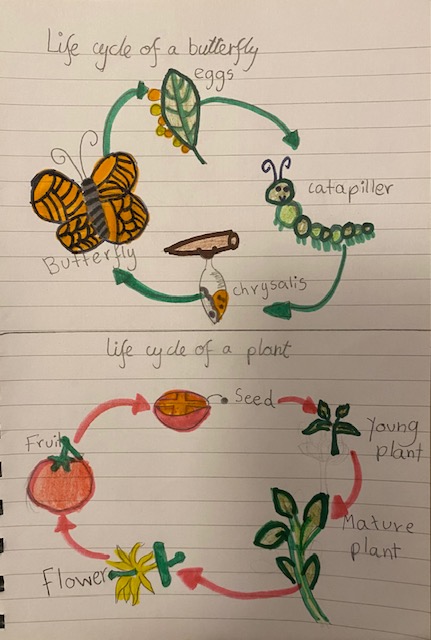 Life cycle of a butterfly
eggs
catapiller
chrysalis
Butterfly
life cycle of a plant
Seed
Young
plant
Mature
plant
Flower
Fruit